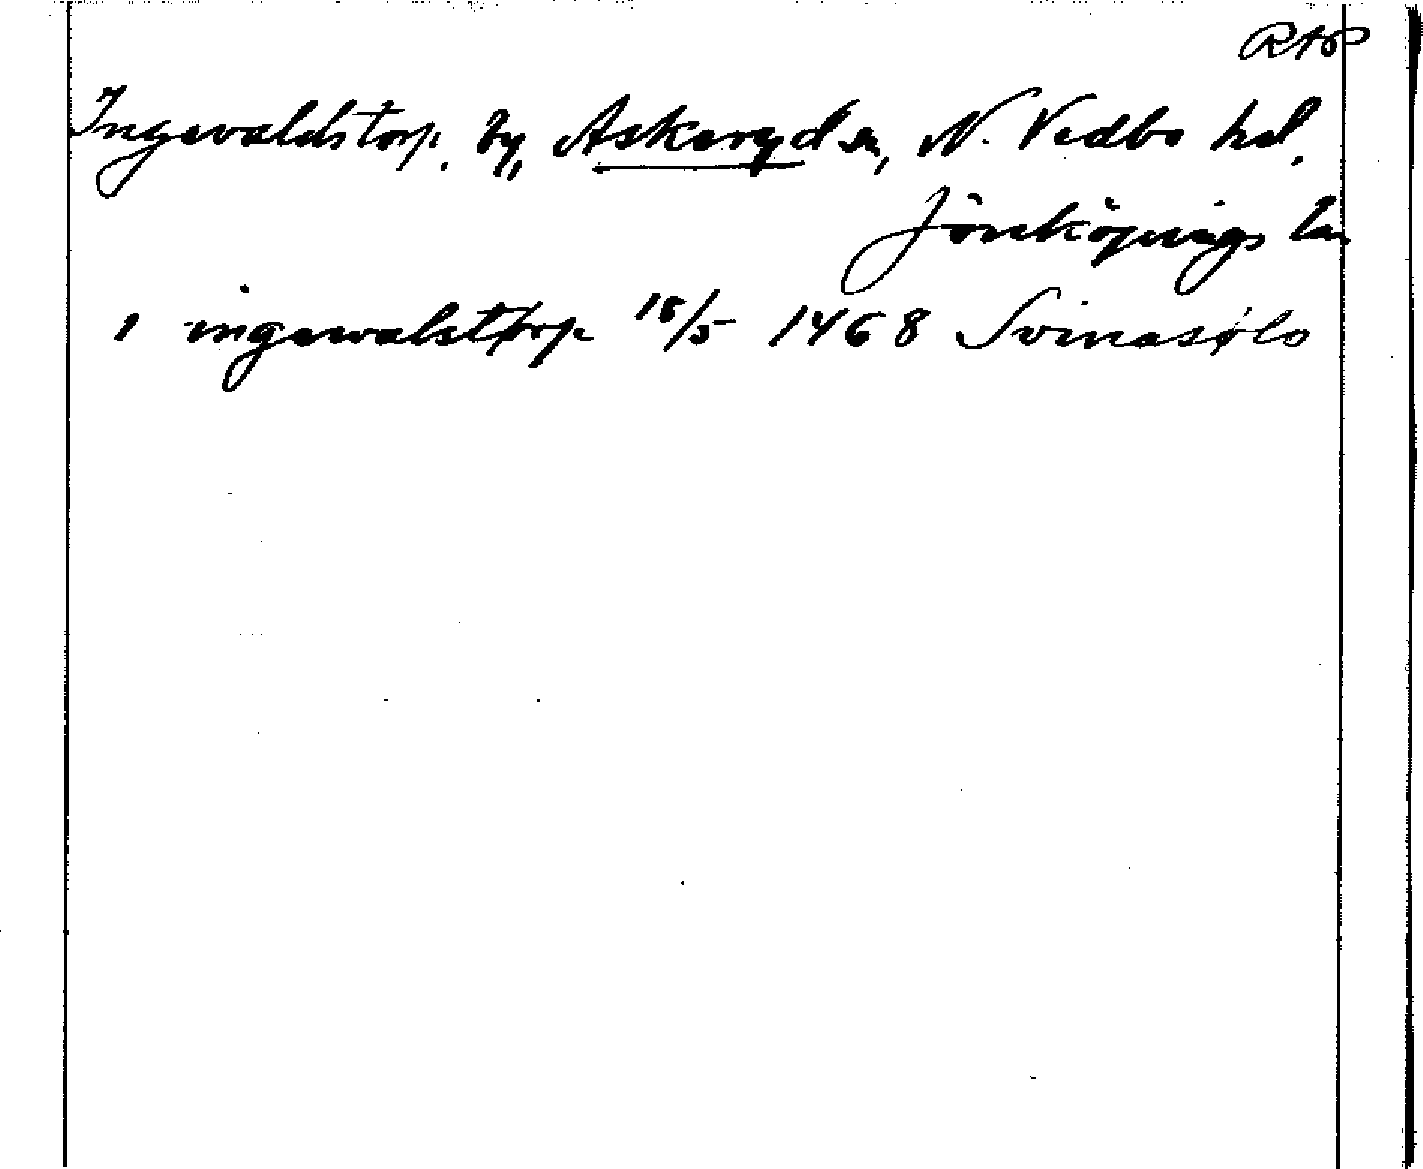 RAP
Ingevaldstorp, by, Askeryd sn, N. Vedbo hd,
Jönköpings län
i ingewalstorp 18/5 1468 Svinasølo